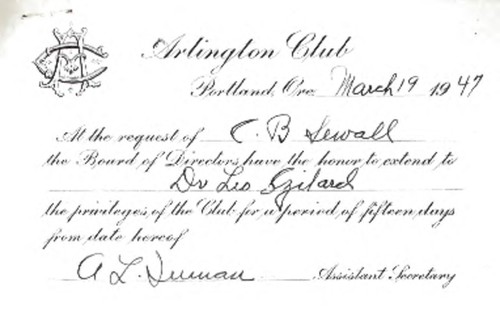 Arlington Club
Portland, Ore. March 19 1947
At the request of C. B Sewall
the Board of Directors have the honor to extend to
Dr Leo Szilard
the privileges of the Club for a period of fifteen days
from date hereof
A. L. Assistant Secretary